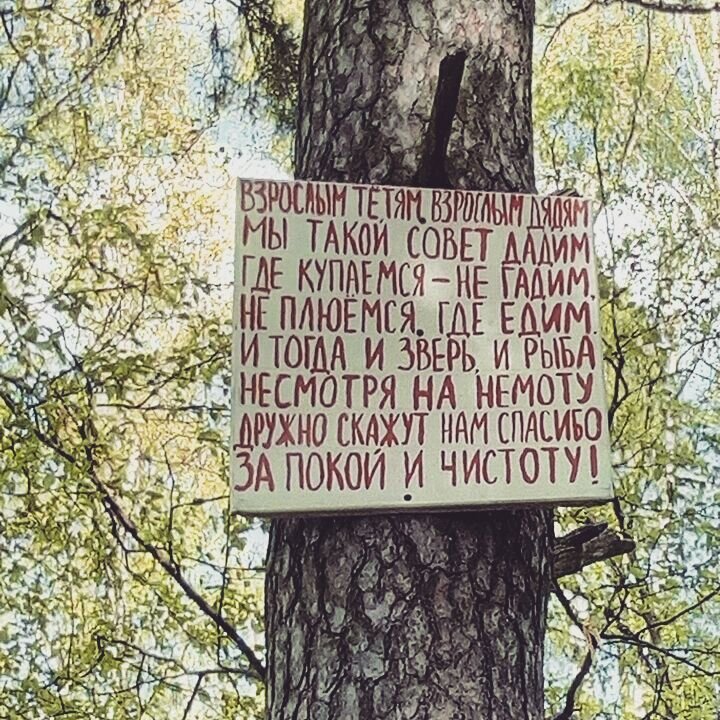 ВЗРОСЛЫМ ТЁТЯМ, ВЗРОСЛЫМ ДЯДЯМ
МЫ ТАКОЙ СОВЕТ ДАДИМ
ГДЕ КУПАЕМСЯ – НЕ ГАДИМ,
НЕ ПЛЮЁМСЯ, ГДЕ ЕДИМ.
И ТОГДА И ЗВЕРЬ, И РЫБА
НЕСМОТРЯ НА НЕМОТУ
ДРУЖНО СКАЖУТ НАМ СПАСИБО
ЗА ПОКОЙ И ЧИСТОТУ!